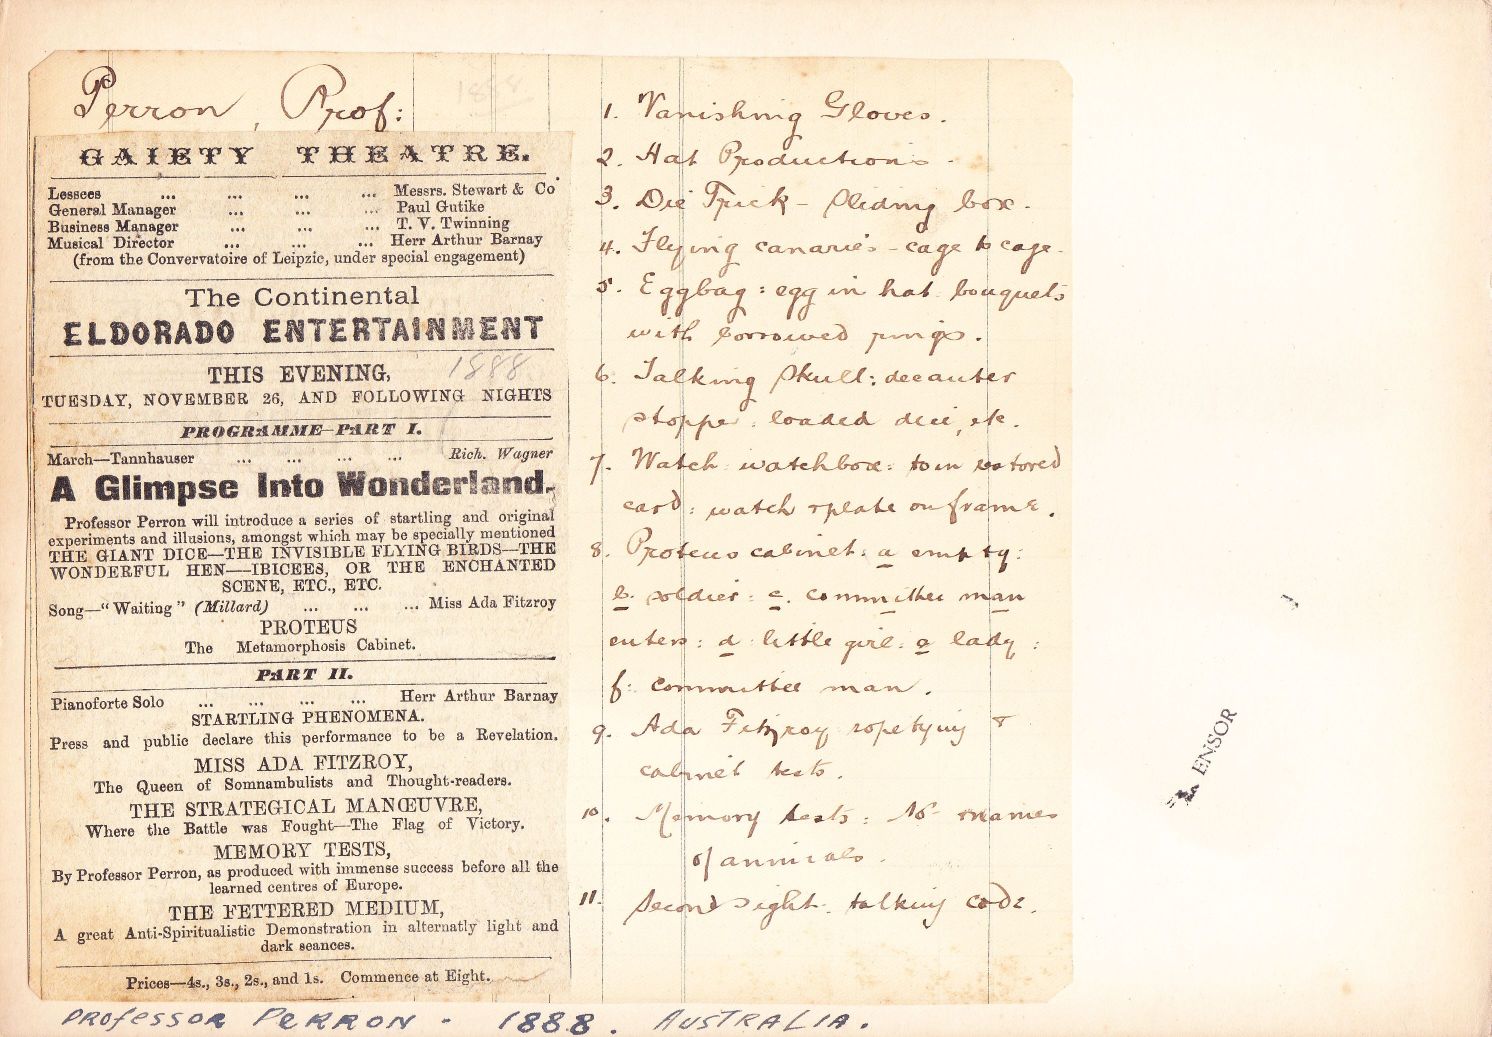 Perron, Prof:
1888
GAIETY THEATRE.
Lessees ... ... ... ... Messrs. Stewart & Co
General Manager ... ... ... Paul Gutike
Business Manager ... ... ... T. V. Twinning
Musical Director ... ... ... Herr Arthur Barnay
(from the Convervatoire of Leipzic, under special engagement)
The Continental
ELDORADO ENTERTAINMENT
THIS EVENING,
1888
TUESDAY, NOVEMBER 26, AND FOLLOWING NIGHTS
PROGRAMME—PART I.
March—Tannhauser ... ... ... ... Rich. Wagner
A Glimpse Into Wonderland.
Professor Perron will introduce a series of startling and original
experiments and illusions, amongst which may be specially mentioned
THE GIANT DICE—THE INVISIBLE FLYING BIRDS—THE
WONDERFUL HEN—IBICEES, OR THE ENCHANTED
SCENE, ETC., ETC.
Song—"Waiting" (Millard) ... ... ... Miss Ada Fitzroy
PROTEUS
The Metamorphosis Cabinet.
PART II.
Pianoforte Solo ... ... ... ... Herr Arthur Barnay
STARTLING PHENOMENA.
Press and public declare this performance to be a Revelation.
MISS ADA FITZROY,
The Queen of Somnambulists and Thought-readers.
THE STRATEGICAL MANŒUVRE,
Where the Battle was Fought—The Flag of Victory.
MEMORY TESTS,
By Professor Perron, as produced with immense success before all the
learned centres of Europe.
THE FETTERED MEDIUM,
A great Anti-Spiritualistic Demonstration in alternatly light and
dark seances.
Prices—4s., 3s., 2s., and 1s. Commence at Eight.
1. Vanishing Gloves.
2. Hat Productions.
3. Die Trick - Sliding box.
4. Flying canaries - cage to cage.
5. Eggbag: egg in hat bouquets
with borrowed rings.
6. Talking Skull: decanter
stopper: loaded dice, etc.
7. Watch: watchbox: torn restored
card: watch & plate on frame.
8. Proteus cabinet: a empty:
b. soldier: c. committee man
enters: d little girl: e lady:
f: committee man.
9. Ada Fitzroy rope tying &
cabinet tests.
10. Memory tests: names
of animals.
11. Second sight. talking code.
PROFESSOR PERRON - 1888. AUSTRALIA.
ENSOR